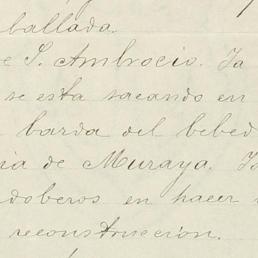 ballada.
e S. Ambrocio. Ya
se esta sacando en
barda del bebed
ia de Muraya. Ya
doberos en hacer
reconstruccion.